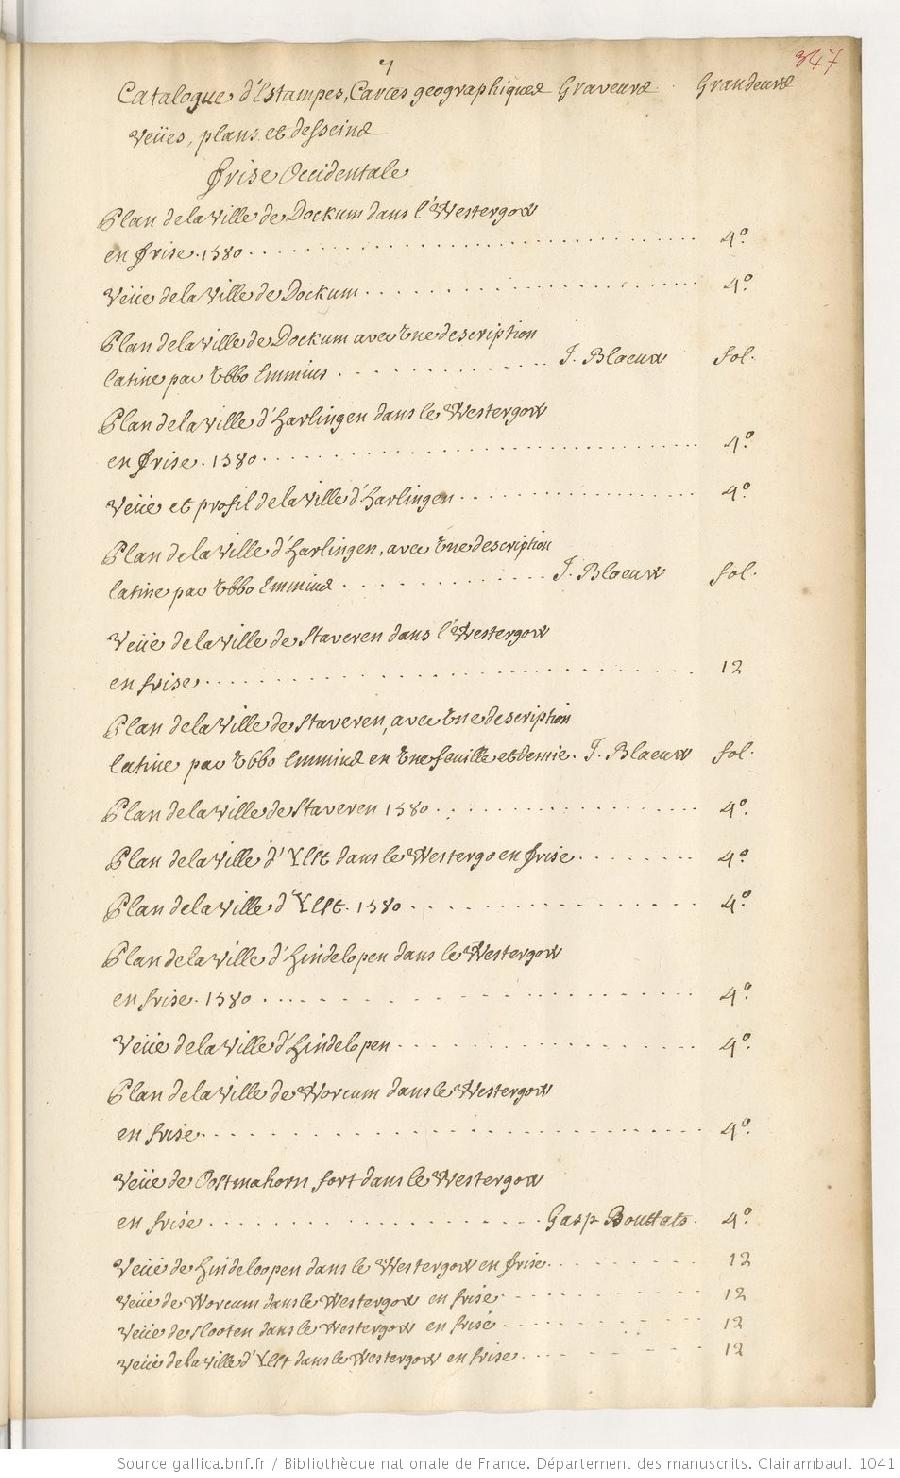 347
Catalogue d'Estampes, Cartes geographiques Graveurs Grandeurs
Veües, plans et desseins
Frise Occidentale
Plan de la Ville de Dockum dans l'Westergow
en Frise. 1580 4°
Veüe de la Ville de Dockum 4°
Plan de la Ville de Dockum avec Une description
latine par Ubbo Emmius J. Blaeuw fol.
Plan de la Ville d'Harlingen dans le Westergow
en Frise. 1580 4°
Veüe et profil de la Ville d'Harlingen 4°
Plan de la Ville d'Harlingen, avec Une description
latine par Ubbo Emmius J. Blaeuw fol.
Veüe de la Ville de Staveren dans l'Westergow
en frise 12
Plan de la Ville de Staveren, avec Une description
latine par Ubbo Emmius en Une feuille et demie. J. Blaeuw fol.
Plan de la Ville de Staveren 1580 4°
Plan de la Ville d'Ylst dans le Westergo en Frise 4°
Plan de la Ville d'Ylst. 1580 4°
Plan de la Ville d'Hindelopen dans le Westergow
en frise. 1580 4°
Veüe de la Ville d'Hindelopen 4°
Plan de la Ville de Worcum dans le Westergow
en frise 4°
Veüe de Oostmahorn fort dans le Westergow
en frise Gasp Bouttats 4°
Veüe de Hindeloopen dans le Westergow en Frise 12
Veüe de Worcum dans le Westergow en frise 12
Veüe de Slooten dans le Westergow en frise 12
Veüe de la Ville d'Ylst dans le Westergow en frise 12
Source gallica.bnf.fr / Bibliothèque nationale de France. Département des manuscrits. Clairambault. 1041